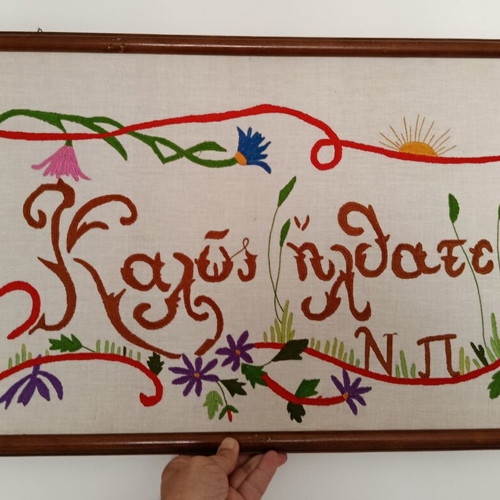 Καλῶς ἤλθατε
Ν Π